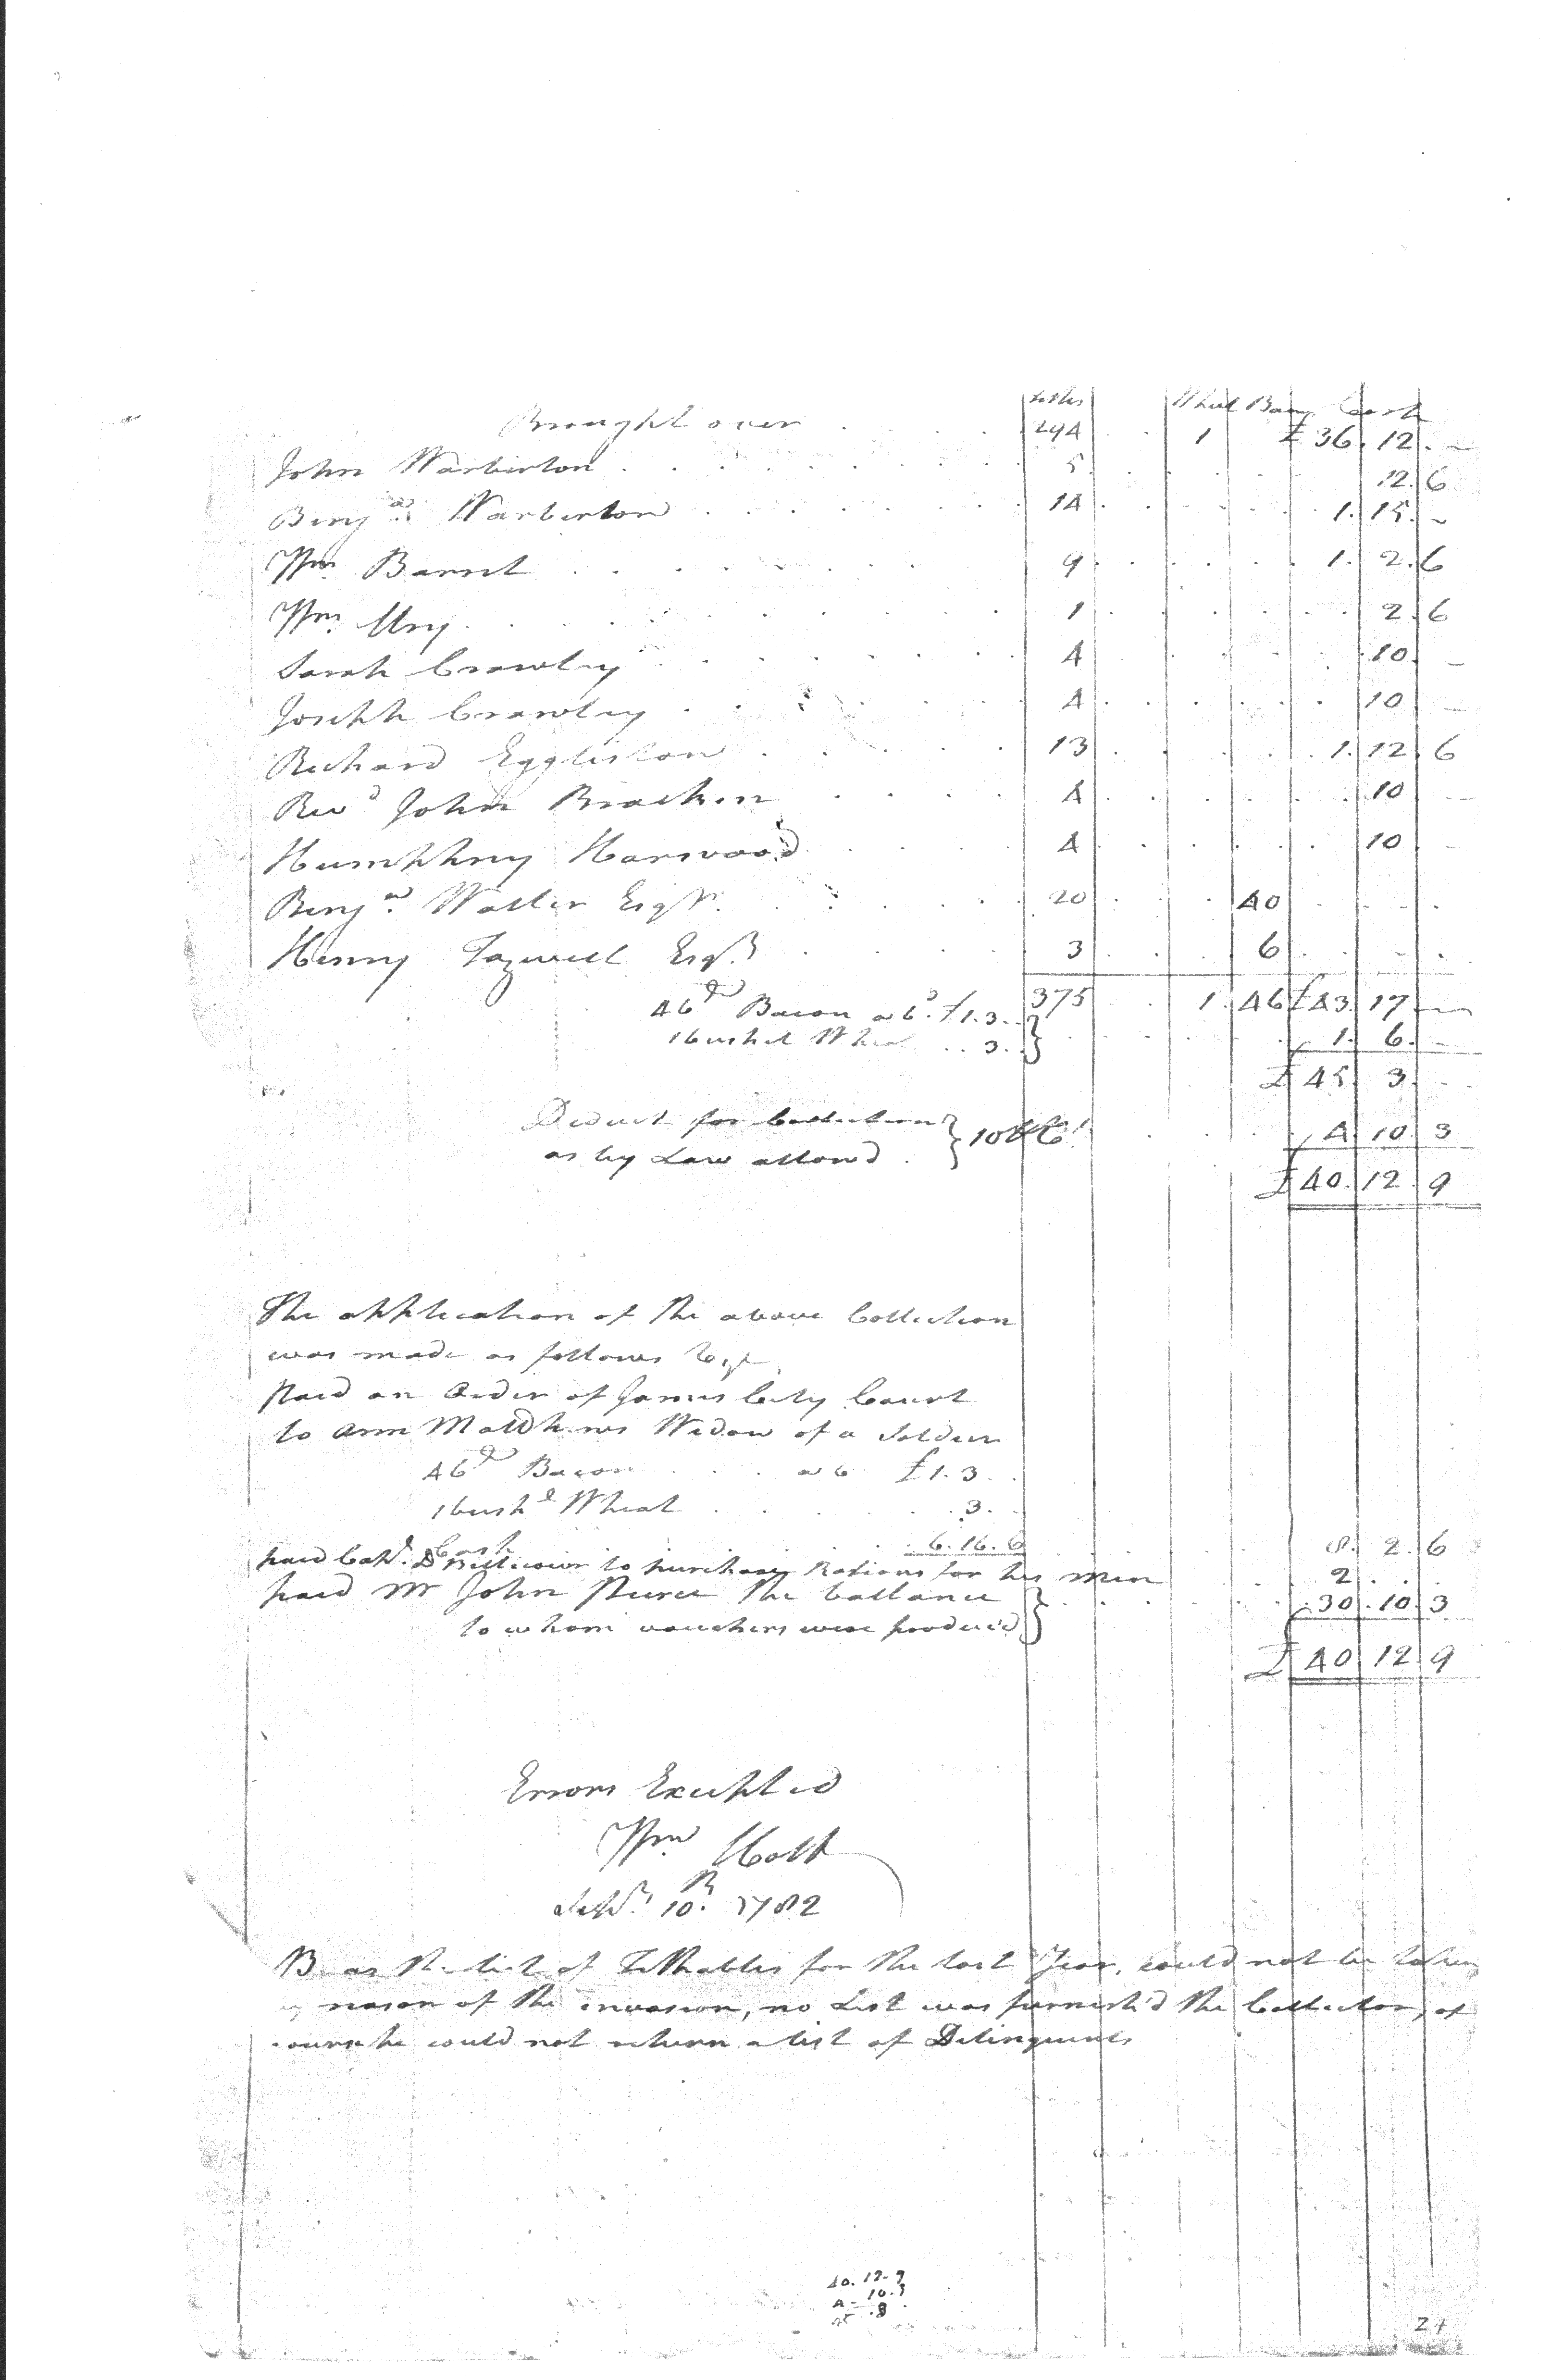 tithes Wheat Bacn Cash
Brought over 294 1 £ 36. 12. —
John Warberton 5 12. 6
Benjⁿ Warberton 14 1. 15. —
Wm Barret 9 1. 2. 6
Wm Ury 1 2. 6
Sarah Crawley 4 10. —
Joseph Crawley 4 10 —
Richard Eggleston 13 1. 12 6
Revd John Bracken 4 10 —
Humphrey Harwood 4 10 —
Benjⁿ Waller Esqr. 20 40
Henry Tazwell Esqr 3 6
375 1. 46 £43. 17 —
46 Bacon a 6d £1. 3.
1 bushel Wheat .. 3. } 1. 6. —
£ 45 3. —
Deduct for Collection
as by Law allowd } 10 4. 10. 3
£ 40. 12. 9
The application of the above Collection
was made as follows
paid an Order of James City Court
to Ann Matthews Widow of a Soldier
46 Bacon a 6 £1. 3.
1 bushl Wheat 3.
Cash 6. 16. 6 8. 2. 6
paid Capt. to purchase Rations for his men 2
paid Mr John Pierce the ballance
to whom vouchers were produced } 30. 10. 3
£ 40 12. 9
Errors Excepted
Wm Holt
10. 1782
B as the list of Tithables for the last Year, could not be taken
reason of the invasion, no List was furnish'd the Collector, of
course he could not return a list of Delinquents
40. 12. 9
4 - 10. 3
27